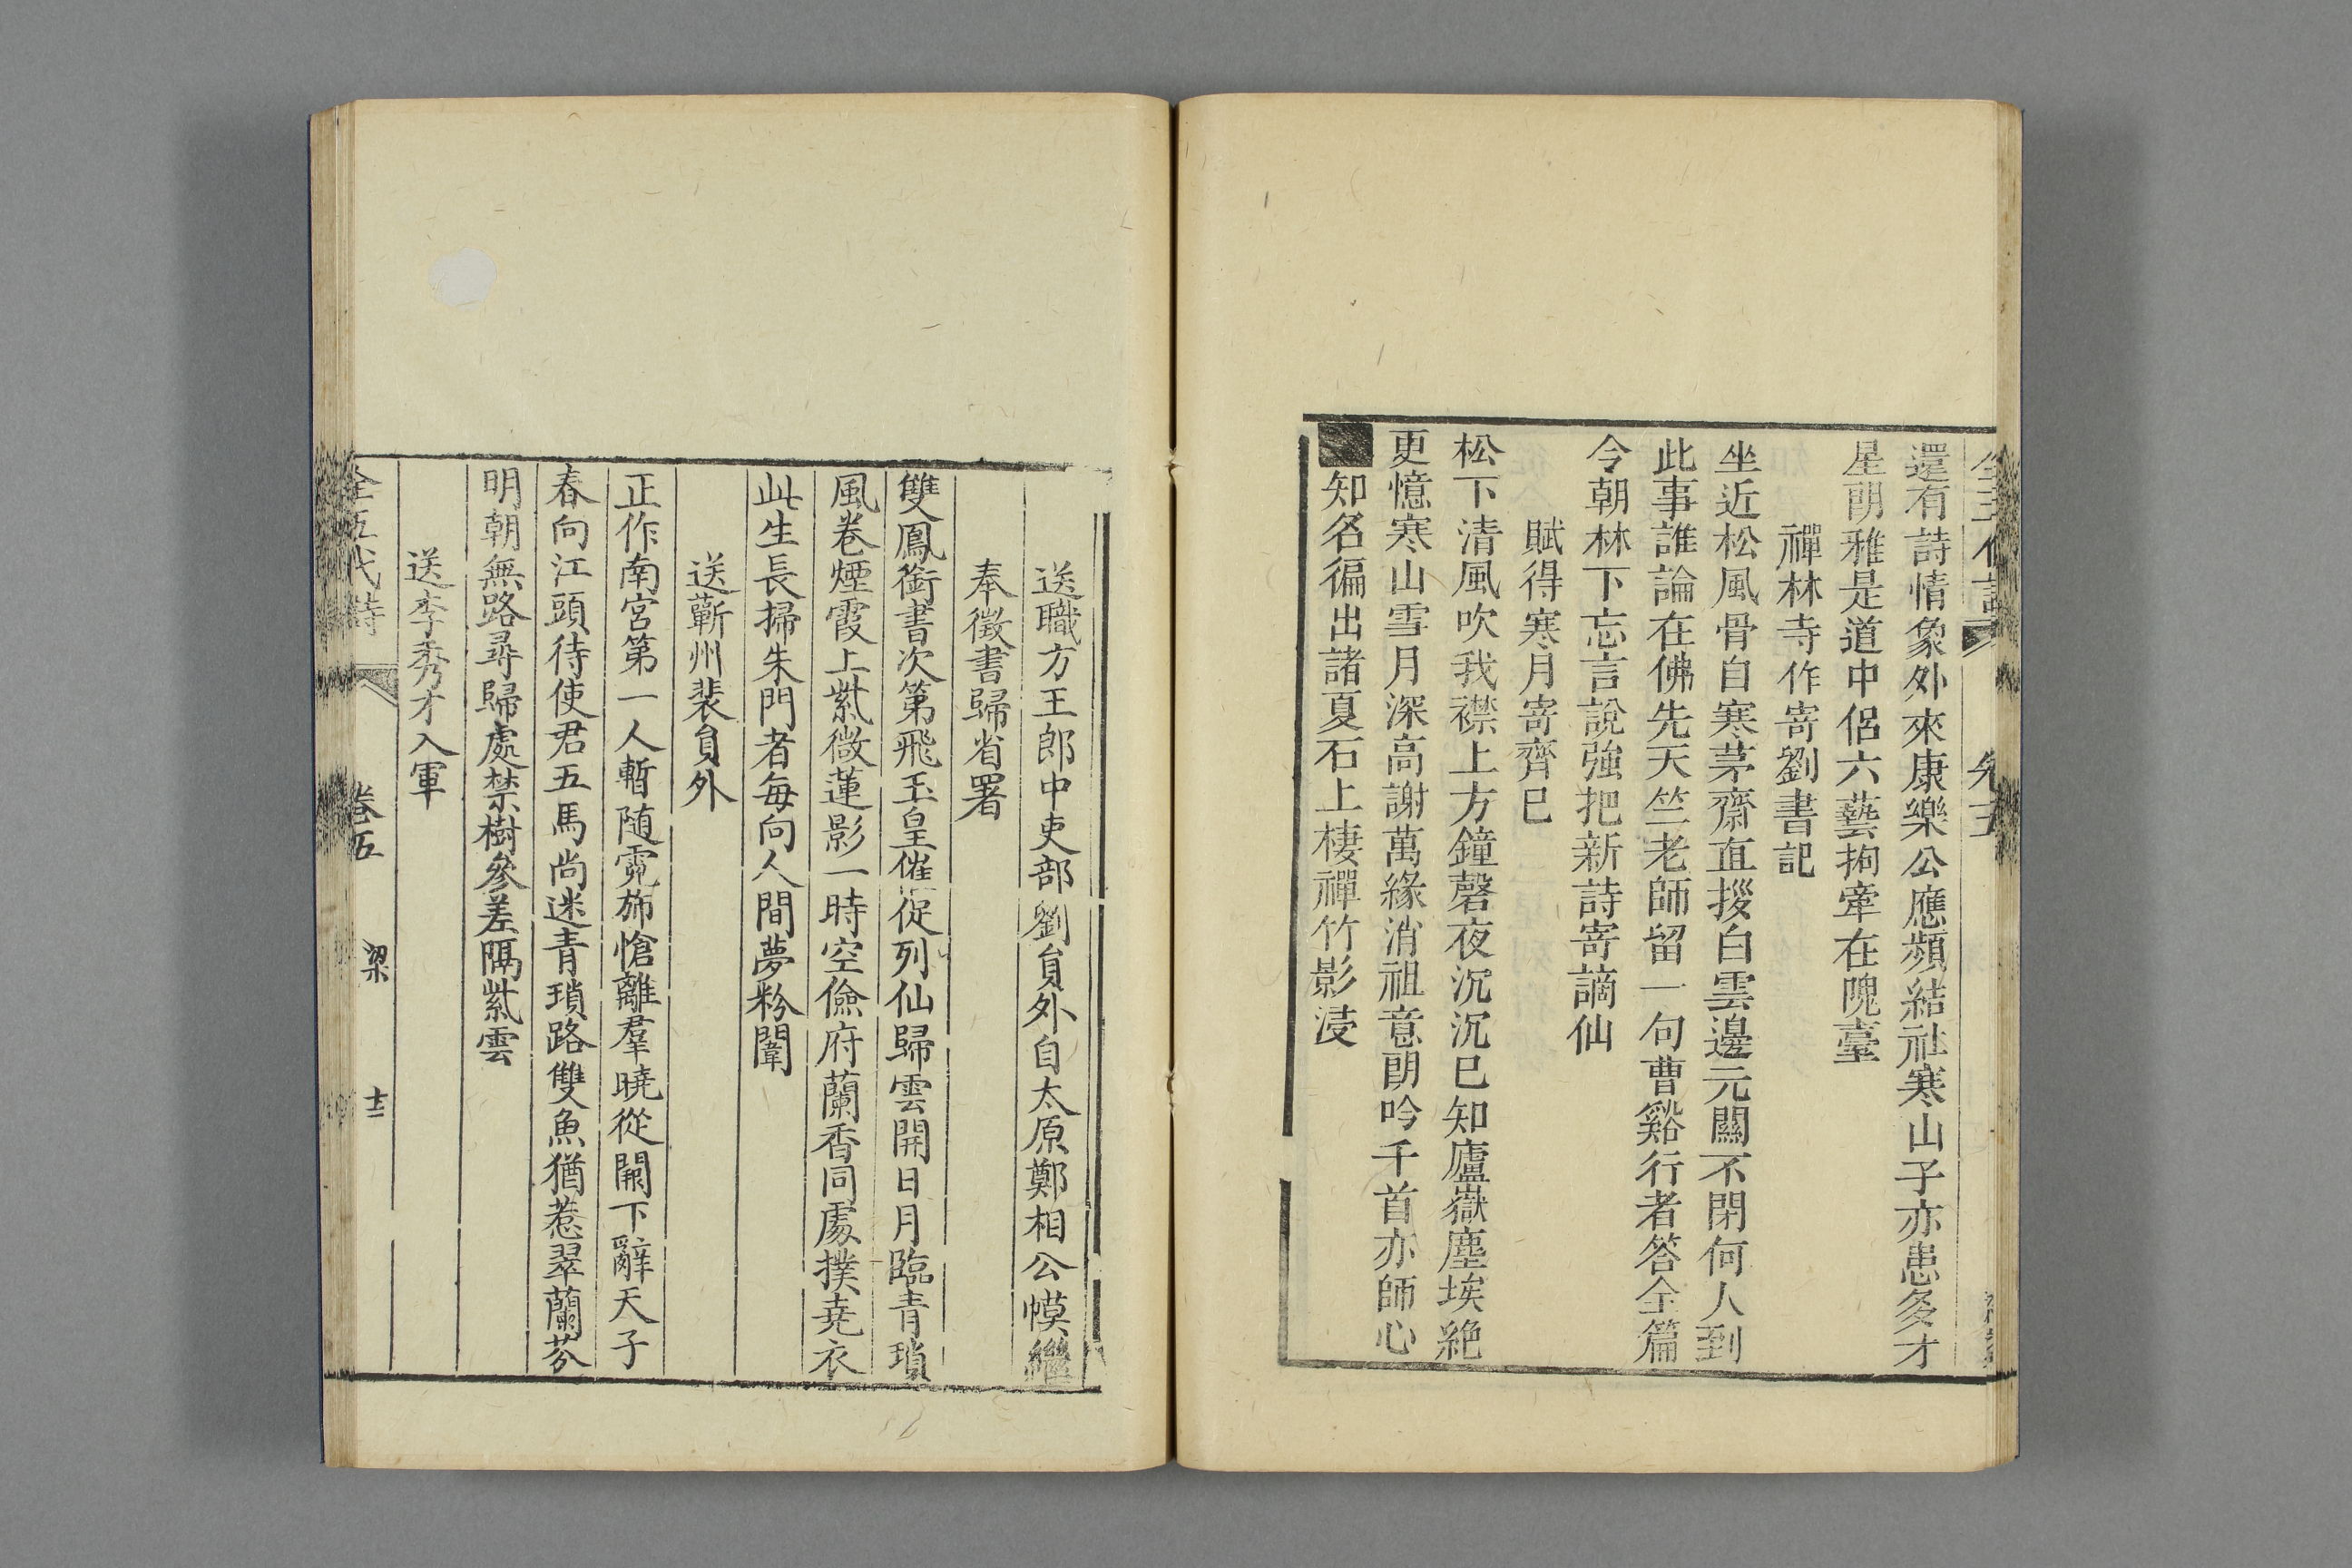 還有詩情象外來康樂公應頻結社寒山子亦患多才
星朗雅是道中侶六藝拘牽在隗臺
禪林寺作寄劉書記
坐近松風骨自寒茅齋直拶白雲邊元關不閉何人到
此事誰論在佛先天竺老師留一句曹谿行者答全篇
今朝林下忘言說強把新詩寄謫仙
賦得寒月寄齊已
松下清風吹我襟上方鐘磬夜沉沉已知廬嶽塵埃絕
更憶寒山雪月深高謝萬緣消祖意朗吟千首亦師心
知名徧出諸夏石上棲禪竹影浸
送職方王郎中吏部劉員外自太原鄭相公幙繼
奉徵書歸省署
雙鳳銜書次第飛玉皇催促列仙歸雲開日月臨青瑣
風卷煙霞上紫微蓮影一時空儉府蘭香同處撲堯衣
此生長掃朱門者每向人間夢粉闈
送蘄州裴員外
正作南宮第一人暫隨霓斾愴離羣曉從闕下辭天子
春向江頭待使君五馬尚迷青瑣路雙魚猶惹翠蘭芬
明朝無路尋歸處禁樹參差隔紫雲
送李秀才入軍
全五代詩 卷五 梁 十三